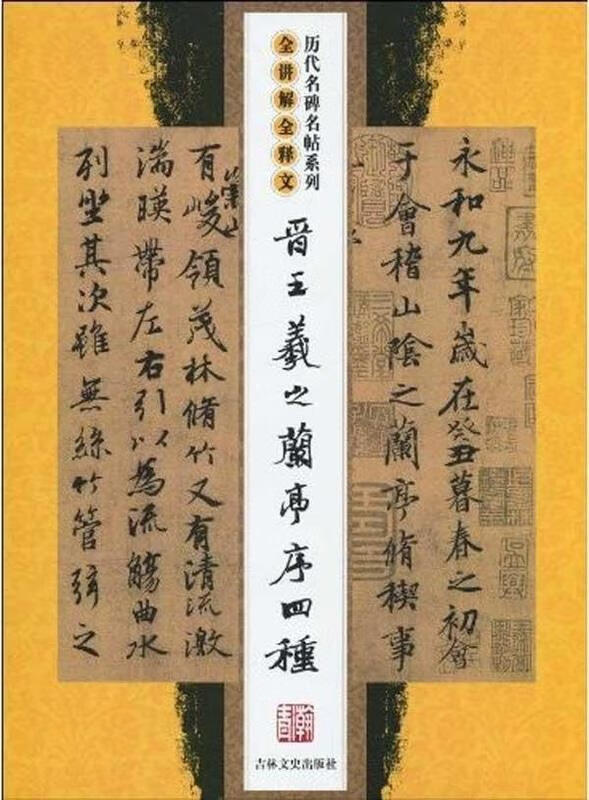 历代名碑名帖系列
全讲解全释文
晋王羲之蘭亭序四種
瀚青
吉林文史出版社
永和九年歲在癸丑暮春之初會
于會稽山陰之蘭亭脩禊事
崇山
有峻領茂林脩竹又有清流激
湍暎帶左右引以為流觴曲水
列坐其次雖無絲竹管弦之